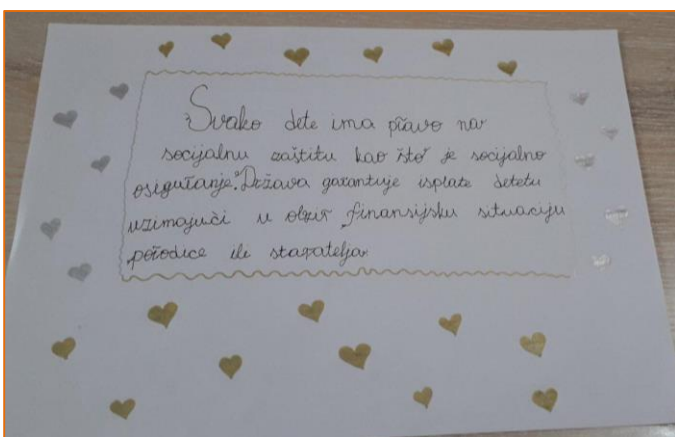 Svako dete ima pravo na
socijalnu zaštitu kao što je socijalno
osiguranje. Država garantuje isplate detetu
uzimajući u obzir finansijsku situaciju
porodice ili staratelja.